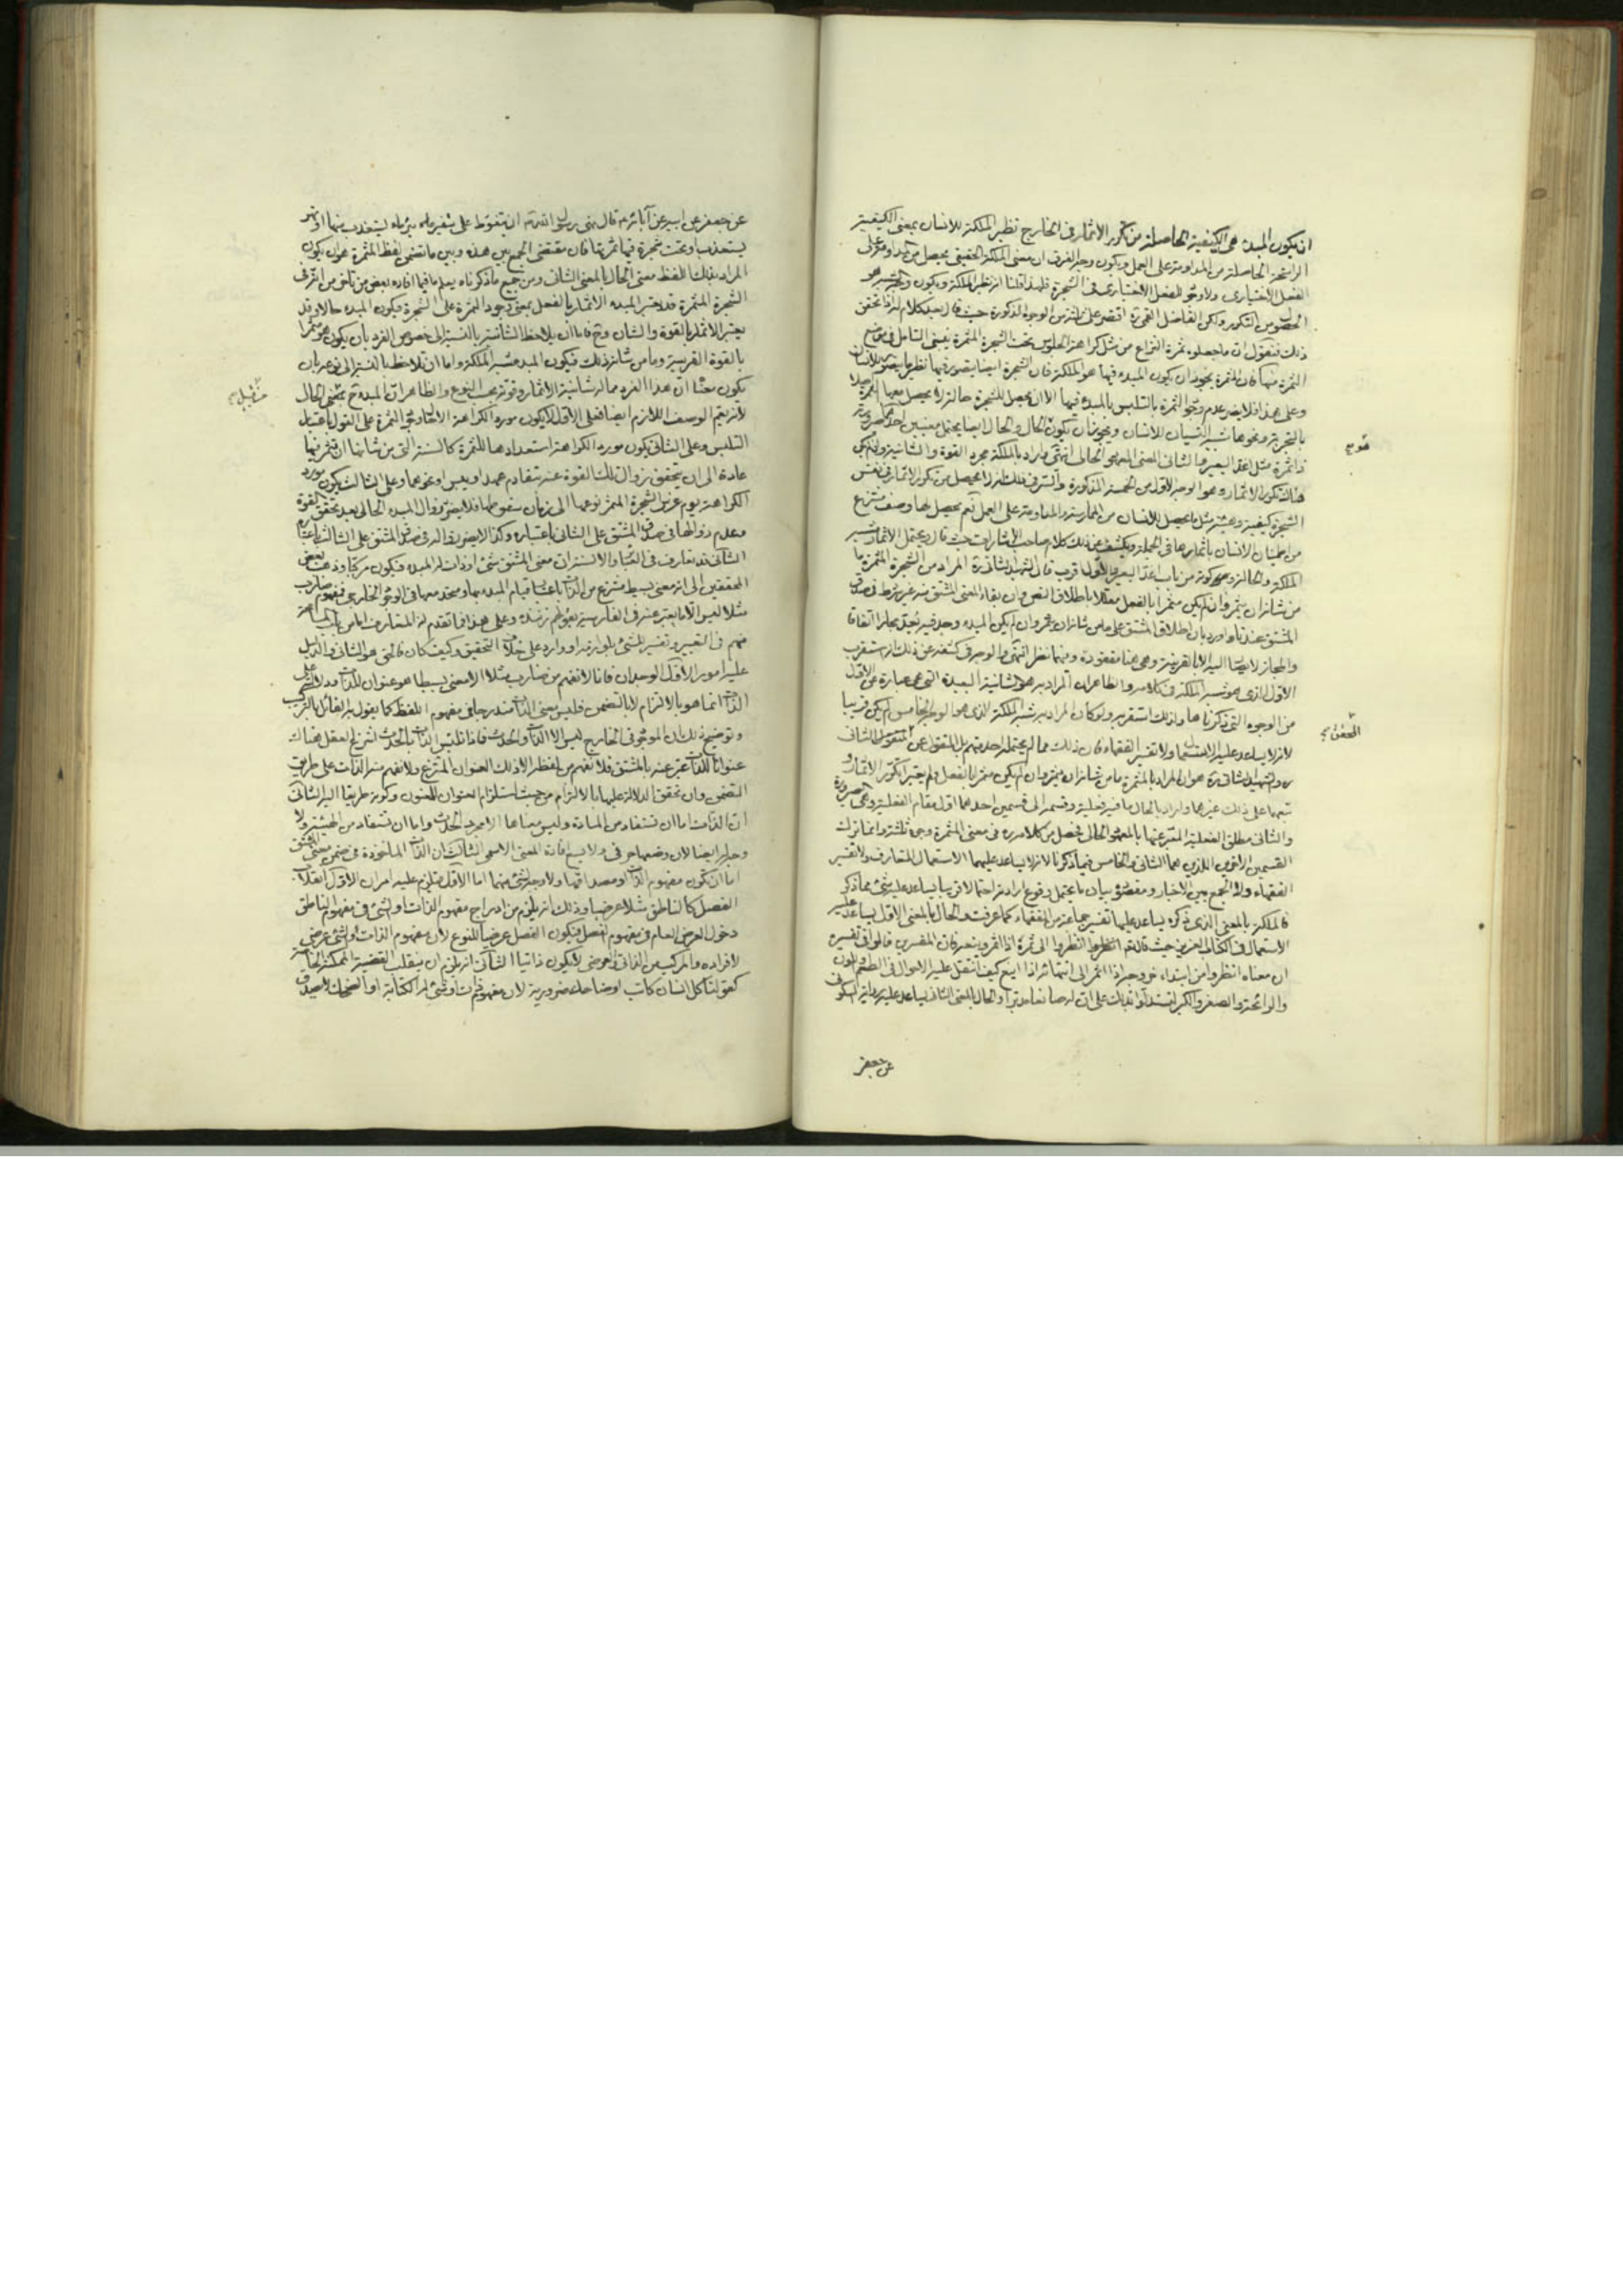 ان يكون المبدء هى الكيفية الحاصلة من تكرر الاثمار فى الخارج نظير الملكة للانسان بمعنى الكيفية
الراسخة الحاصلة من المداومة على العمل ويكون وجه الفرق ان معنى الملكة الحقيقى يحصل من
الفعل الاختيارى ولا وجود للفعل الاختيارى فى الشجرة فلهذا قلنا انه نظير الملكة ويكون
الحصول من التكرر ولكن الفاضل القمى ره اقتصر على من الوجوه المذكورة حيث قال بعد كلام له فاذا تحقق
ذلك فنقول ان ما جعلوه ثمرة النزاع من مثل كراهة الجلوس تحت الشجرة المثمرة ينبغى التأمل فى موضع
الثمرة منها فان المثمرة يجوز ان يكون المبدء فيها هو الملكة فان للشجرة ايضا يتصور فيها نظير ما يتصور للانسان
وعلى هذا فلا يضر عدم وجود الثمرة بالتلبس بالمبدء فيها الا ان يحصل للشجرة حالة لا يحصل معها الثمرة
بالتجربة ونحوها شبه النسيان للانسان ويجوز ان يكون الحال والحال ايضا يحتمل معنيين احدهما صيرورته
ذا ثمرة مثل اغد البعير والثانى المعنى المعهود الحالى انتهى فاراد بالملكة مجرد القوة والشانية وان لم يكن
هناك تكرر الاثمار وهو الوجه الاول من الخمسة المذكورة والسر فى ذلك انه لا يحصل من تكرر الاثمار فى نفس
الشجرة كيفية وهيئة مثل ما يحصل للانسان من الممارسة والمداومة على العمل نعم يحصل لها وصف منتزع
من اطمينان الانسان باثمارها فى الجملة ويكشف عن ذلك كلام صاحب الاشارات حيث قال ويحتمل الاثمار شبه
الملكة والحال وكونه من باب اغد البعير والاول اقرب قال الشهيد الثانى ره المراد من الشجرة المثمرة ما
من شانها ان يثمر وان لم يكن مثمرا بالفعل معللا باطلاق النص وان بقاء المعنى المشتق منه غير شرط فى صدق
المشتق عندنا واورد بان اطلاق المشتق على ما من شانه ان يثمر وان لم يكن المبدء وجد فيه بعد مجاز اتفاقا
والمجاز لا يصار اليه الا بالقرينة وهى هنا مفقودة ومنهما نظر انتهى والوجه فى كشفه عن ذلك انه استقرب
الاول الذى هو شبه الملكة فى كلامه والظاهر ان المراد به هو الشانية البعيدة التى هى عبارة عن الاول
من الوجوه التى ذكرناها ولذلك استقربه ولو كان المراد به شبه الملكة الذى هو الوجه الخامس لم يكن قريبا
لانه لا يساعد عليه الاستعمال ولا تفسير الفقهاء فان ذلك مما لم يحتمله احد منهم بل المنقول عن المحقق الثانى
ره والشهيد الثانى ره هو ان المراد بالمثمرة ما من شانه ان يثمر وان لم يكن مثمرا بالفعل فلم يعتبر تكرر الاثمار و
تبعهما على ذلك غيرهما واراد بالحال ما فيه فعلية وقسمه الى قسمين احدهما اول مقام الفعلية وهى الصيرورة
والثانى مطلق الفعلية المعبر عنها بالمعهود الحالى فحصل من كلامه ره فى معنى المثمرة وجوه ثلثة وانما ترك
القسمين الاخرين اللذين هما الثانى والخامس فيما ذكرنا لانه لا يساعد عليهما الاستعمال المتعارف ولا تفسير
الفقهاء ولا الجمع بين الاخبار ومقصوده بيان ما يحتمل وقوع ارادته احتمالا قريبا يساعد عليه شئ مما ذكر
فالملكة بالمعنى الذى ذكره يساعد عليها تفسير جماعة من الفقهاء كما عرفت والحال بالمعنى الاول يساعد عليه
الاستعمال فى الكتاب العزيز حيث قال تعالى انظروا الى ثمره اذا اثمر وينعه فان المفسرين قالوا فى تفسيره
ان معناه انظروا من ابتداء خروجه اذا اثمر الى انتهائه اذا اينع كيف تنتقل عليه الاحوال فى الطعم واللون
والرائحة والصغر والكبر لتستدلوا بذلك على ان له صانعا مدبرا والحال بالمعنى الثانى يساعد عليه رواية السكونى
عن جعفر
عن جعفر عن ابيه عن آبائه ع قال نهى رسول الله ص ان يتغوط على شفير ماء بئر ماء يستعذب منها او نهر
يستعذب او تحت شجرة فيها ثمرتها فان مقتضى الجمع بين هذه وبين ما تضمن لفظ المثمرة هو ان يكون
المراد بذلك اللفظ معنى الحال بالمعنى الثانى ومن جميع ما ذكرناه يعلم ما فيما افاده بعض من تأخر من ان فى
الشجرة المثمرة قد يعتبر المبدء الاثمار بالفعل بمعنى وجود الثمرة على الشجرة فيكون المبدء حالا وقد
يعتبر الاثمار بالقوة والشان وح فاما ان يلاحظ الشانية بالنسبة الى خصوص الفرد بان يكون هو مثمرا
بالقوة القريبة وما من شانه ذلك فيكون المبدء شبه الملكة واما ان تلاحظ بالنسبة الى نوعه بان
يكون معنا ان هذا الفرد مما له شانية الاثمار وقوته بحسب النوع والظاهر ان المبدء ح بمعنى الحال
لانه يعم الوصف اللازم ايضا فعلى الاول يكون مورد الكراهة الا حال وجود الثمرة على القول باعتبار
التلبس وعلى الثانى يكون مورد الكراهة استعدادها للثمرة كالسنة التى من شانها ان تثمر فيها
عادة الى ان يتحقق زوال تلك القوة عنه بتقادم عهد او يبس او نحوهما وعلى الثالث يكون مورد
الكراهة يوم غرس الشجرة المثمر نوعها الى زمان سقوطها فلا يضر زوال المبدء الحالى بعد تحقق القوة
وعدم زوالها فى صدق المشتق على الثانى باعتباره وكذا لا يضر بقائه فى صدق المشتق على الثالث باعتباره
الثانى قد تعارف فى العبارات والالسنة ان معنى المشتق شئ او ذات له المبدء فيكون مركبا وذهب بعض
المحققين الى انه معنى بسيط منتزع من الذات باعتبار قيام المبدء بها ومتحد معها فى الوجود الخارجى فمفهوم ضارب
مثلا ليس الا ما يعبر عنه فى الفارسية بقولهم زننده وعلى هذا فما تقدم له المتعارف اما من باب المسامحة
منهم فى التعبير وتفسير للشئ بلوازمه او وارد على خلاف التحقيق وكيف كان فالحق هو الثانى والدليل
عليه امور الاول الوجدان فانا لا نفهم من ضارب مثلا الا معنى بسيطا هو عنوان للذات ودلالته على
الذات انما هو بالالتزام لا بالتضمن فليس معنى الذات مندرجا فى مفهوم اللفظ كما يقول به القائل بالتركيب
وتوضيح ذلك ان الموجود فى الخارج ليس الا الذات والحدث فاذا تلبس الذات بالحدث انتزع العقل هناك
عنوانا للذات عبر عنه بالمشتق فلا نفهم من لفظه الا ذلك العنوان المنتزع ولا نفهم منه الذات على طريق
التضمن وان تحقق الدلالة عليها بالالتزام من حيث استلزام العنوان للمعنون وكونه طريقا اليه الثانى
ان الذات اما ان تستفاد من المادة وليس معناها الا مجرد الحدث واما ان تستفاد من الهيئة ولا
وجه له ايضا لان وضعها حرفى ولا يسع افادة المعنى الاسمى الثالث ان الذات الماخوذة فى ضمن معنى المشتق
اما ان تكون مفهوم الذات او مصداقها ولا وجه لشئ منهما اما الاول فيلزم عليه امران الاول انقلاب
الفصل كالناطق مثلا عرضيا وذلك انه يلزم من ادراج مفهوم الذات او الشئ فى مفهوم الناطق
دخول العرض العام فى مفهوم الفصل فيكون الفصل عرضيا للنوع لان مفهوم الذات او الشئ عرضى
لافراده والمركب من الذاتى والعرضى لا يكون ذاتيا الثانى انه يلزم ان ينقلب القضية الممكنة الخاصة
كقولنا كل انسان كاتب او ضاحك ضرورية لان مفهوم ذات او شئ له الكتابة او الضحك يصدق